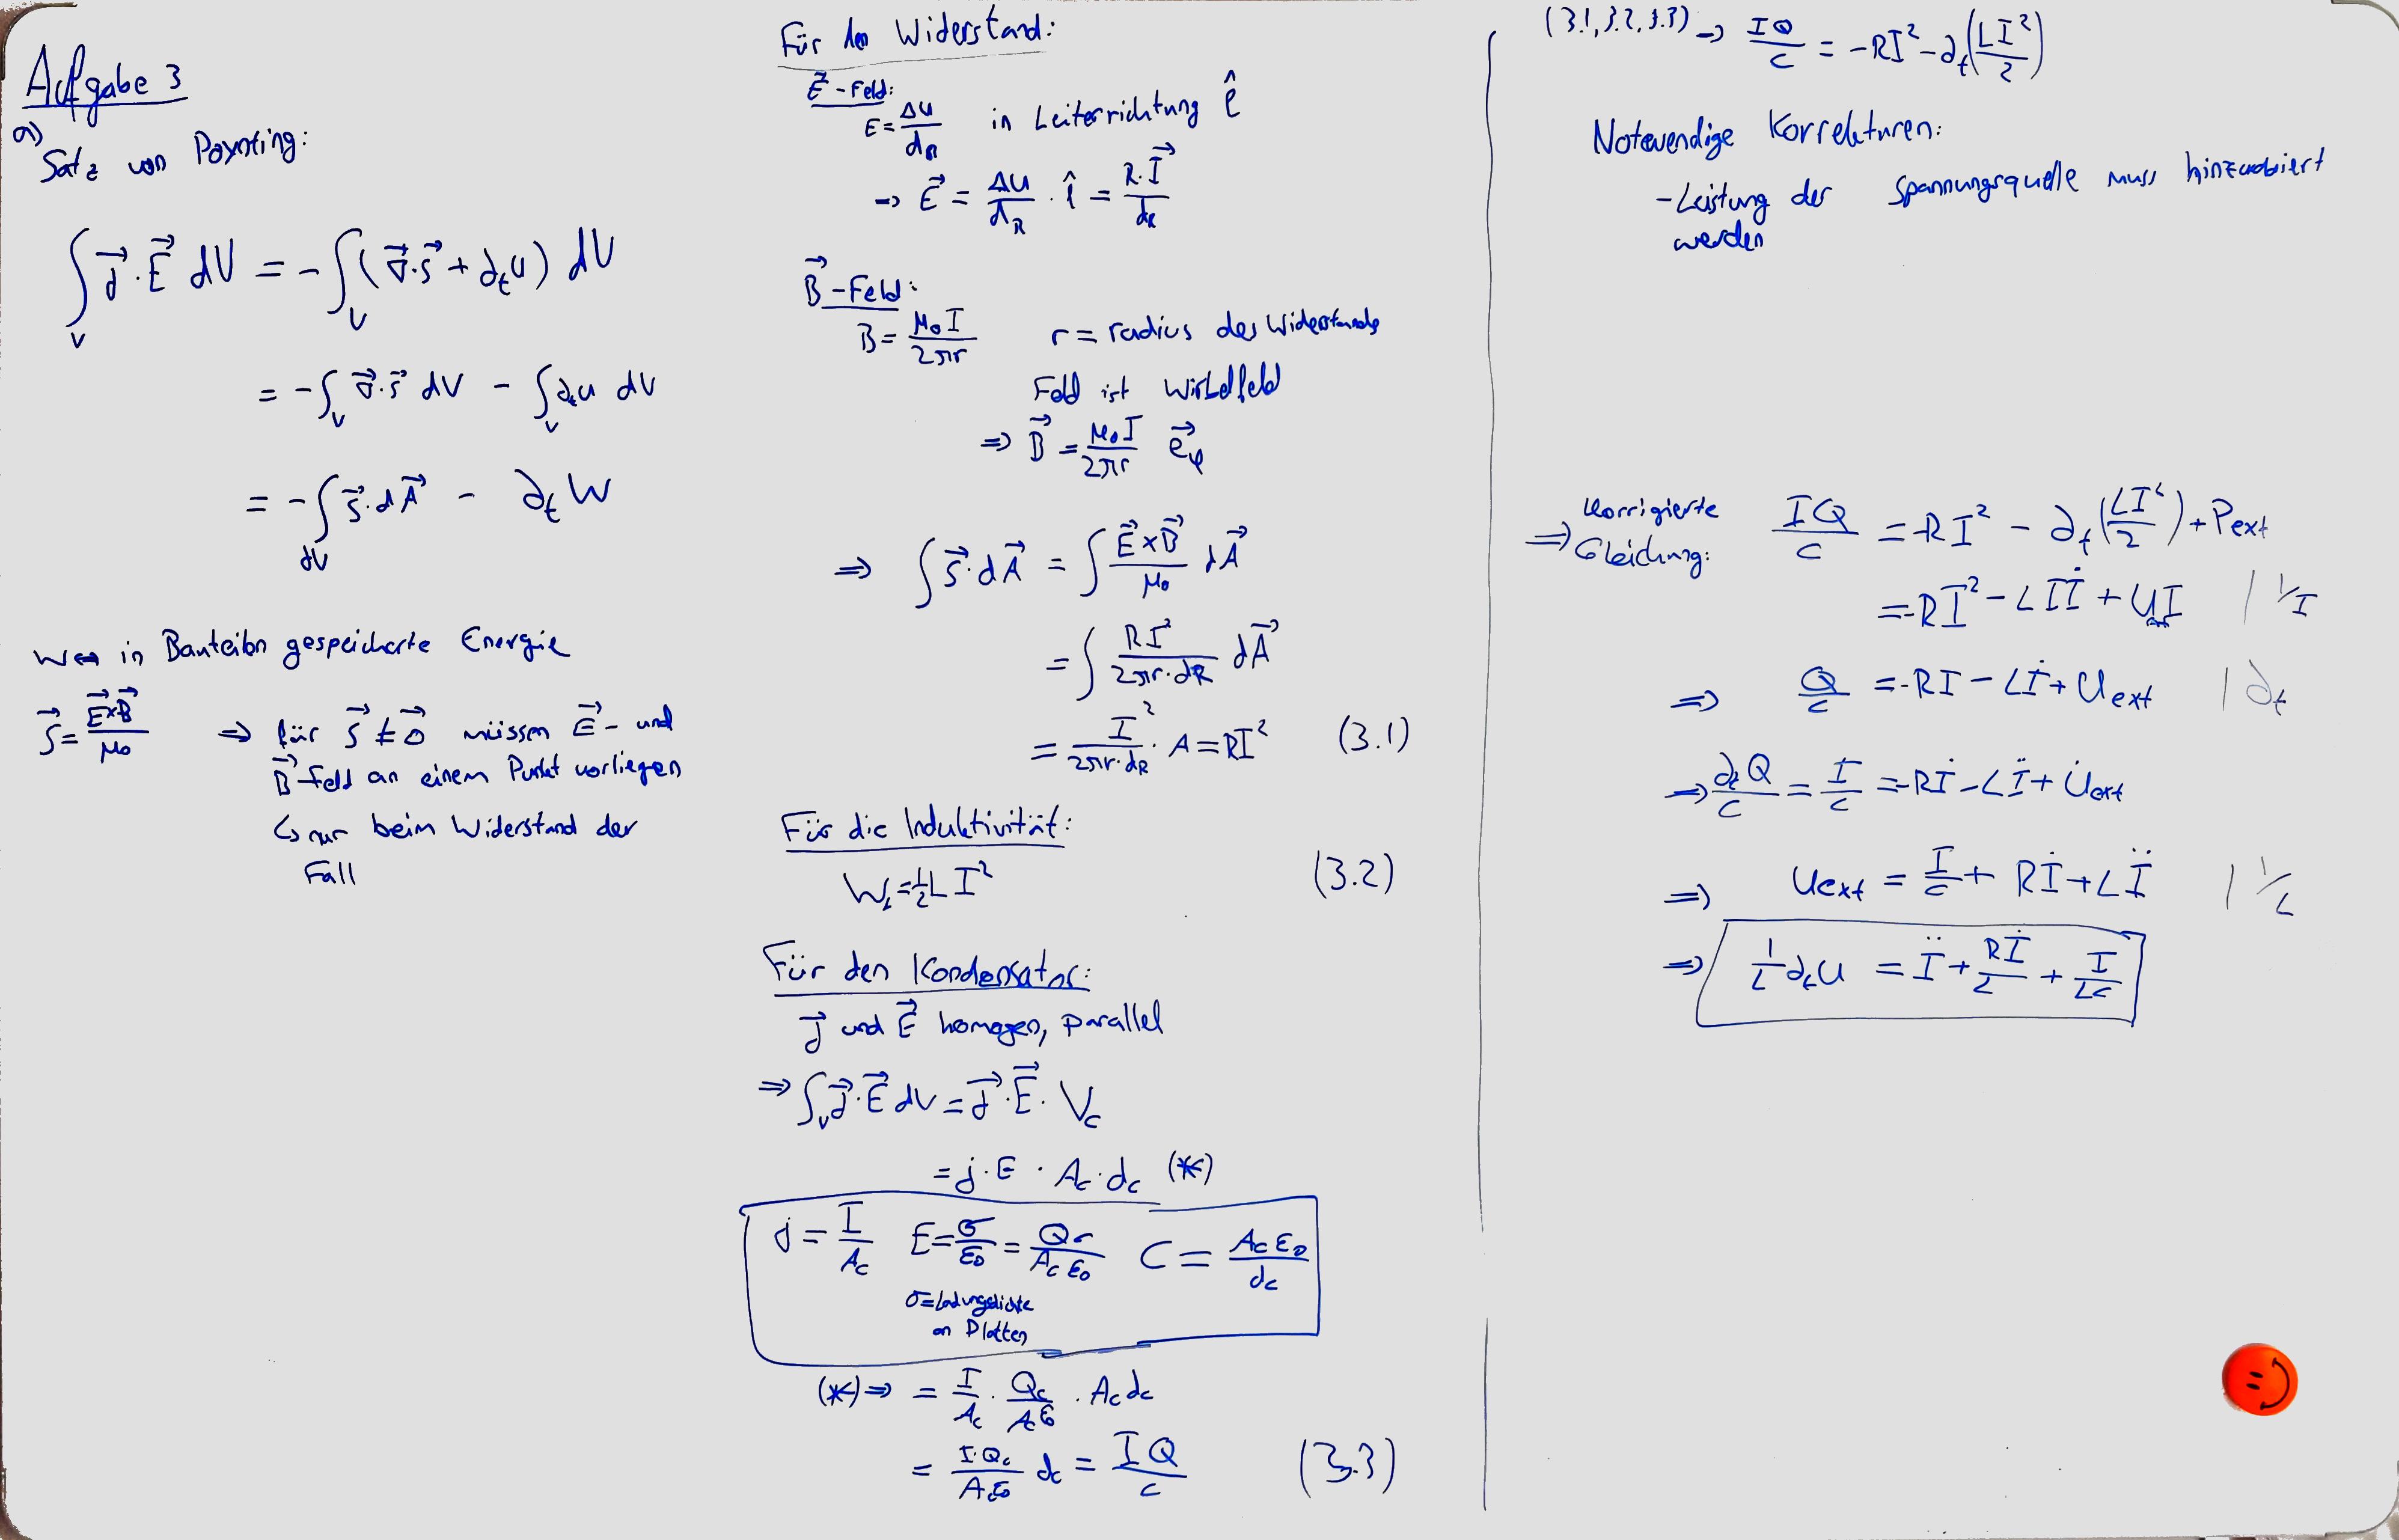 Aufgabe 3
a)
Satz von Poynting:
∫_V j⃗·E⃗ dV = -∫_V (∇⃗·S⃗ + ∂_t u) dV
= -∫_V ∇⃗·S⃗ dV - ∫_V ∂_t u dV
= -∫_dV S⃗·dA⃗ - ∂_t W
W ↔ in Bauteilen gespeicherte Energie
S⃗ = (E⃗×B⃗)/μ₀ ⇒ für S⃗ ≠ 0⃗ müssen E⃗- und
B⃗-Feld an einem Punkt vorliegen
↳ nur beim Widerstand der
Fall
Für den Widerstand:
E⃗-Feld:
E = ΔU/d_R in Leiterrichtung l̂
⇒ E⃗ = ΔU/d_R · l̂ = R·I⃗/d_R
B⃗-Feld:
B = μ₀I/2πr r = radius des Widerstands
Feld ist Wirbelfeld
⇒ B⃗ = μ₀I/2πr e⃗_φ
⇒ ∫ S⃗·dA⃗ = ∫ (E⃗×B⃗)/μ₀ dA⃗
= ∫ RI²/(2πr·d_R) dA⃗
= I²/(2πr·d_R) · A = RI² (3.1)
Für die Induktivität:
W_L = ½LI² (3.2)
Für den Kondensator:
j⃗ und E⃗ homogen, parallel
⇒ ∫_V j⃗·E⃗ dV = j⃗·E⃗·V_c
= j·E·A_c·d_c (*)
j = I/A_c E = σ/ε₀ = Q_c/(A_c ε₀) C = A_c ε₀/d_c
σ = Ladungsdichte
an Platten
(*) ⇒ = I/A_c · Q_c/(A_c ε₀) · A_c d_c
= I·Q_c/(A_c ε₀) d_c = IQ/C (3.3)
(3.1, 3.2, 3.3) → IQ/C = -RI² - ∂_t(LI²/2)
Notwendige Korrekturen:
- Leistung der Spannungsquelle muss hinzuaddiert
werden
⇒ Korrigierte Gleichung: IQ/C = -RI² - ∂_t(LI²/2) + P_ext
= -RI² - LIİ + U_ext I | 1/I
⇒ Q/C = -RI - Lİ + U_ext | ∂_t
⇒ ∂_t Q/C = I/C = -Rİ - LÏ + U̇_ext
⇒ U_ext = I/C + Rİ + LÏ | 1/L
⇒ 1/L ∂_t U = Ï + Rİ/L + I/LC